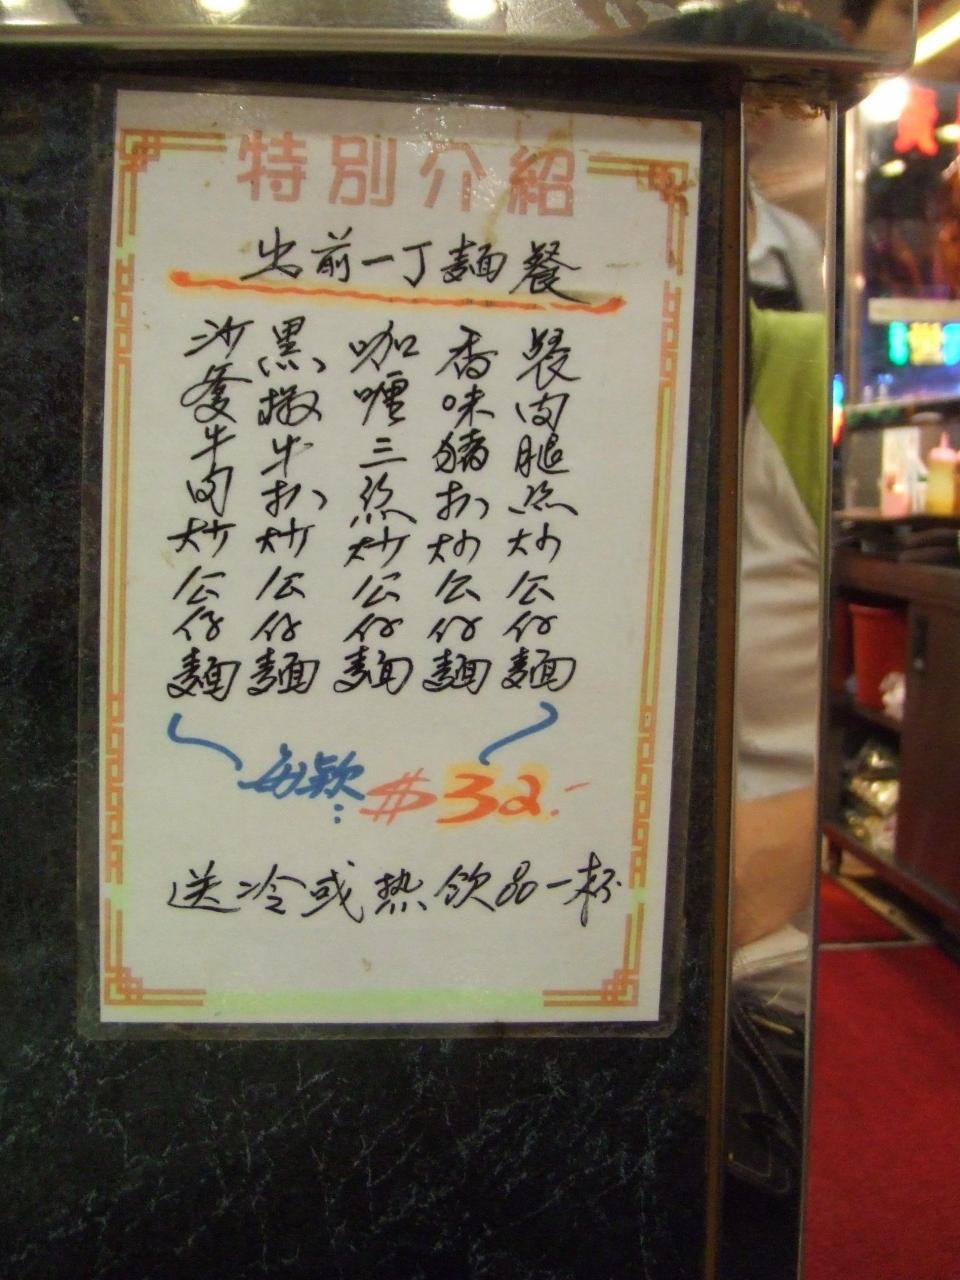 特別介紹
出前一丁麵餐
沙爹牛肉炒公仔麵
黑撒牛扒炒公仔麵
咖喱三絲炒公仔麵
香味猪扒炒公仔麵
餐肉腿絲炒公仔麵
每款：$32.-
送冷或热飲品一杯